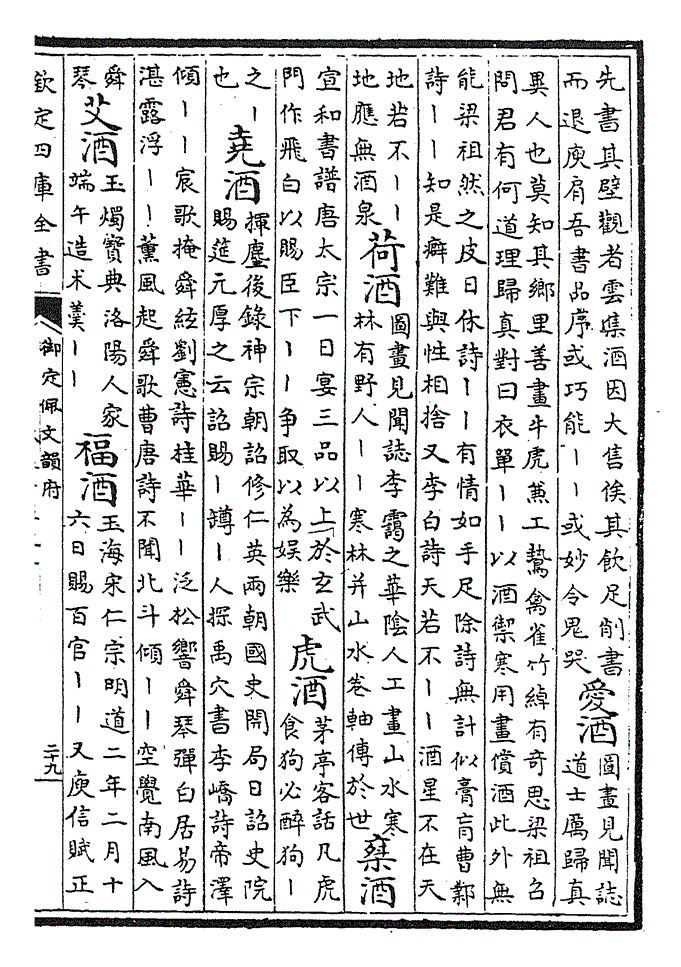 先書其壁觀者雲集酒因大售俟其飲足削書
而退庾肩吾書品序或巧能丨丨或妙令鬼哭
愛酒
圖畫見聞誌
道士厲歸真
異人也莫知其鄉里善畫牛虎兼工鷙禽雀竹綽有奇思梁祖召
問君有何道理歸真對曰衣單丨丨以酒禦寒用畫償酒此外無
能梁祖然之皮日休詩丨丨有情如手足除詩無計似膏肓曹鄴
詩丨丨知是癖難與性相捨又李白詩天若不丨丨酒星不在天
地若不丨丨
地應無酒泉
荷酒
圖畫見聞誌李靄之華陰人工畫山水寒
林有野人丨丨寒林并山水卷軸傳於世
椉酒
宣和書譜唐太宗一日宴三品以上於玄武
門作飛白以賜臣下丨丨爭取以為娛樂
虎酒
茅亭客話凡虎
食狗必醉狗丨
之丨
也
堯酒
揮麈後錄神宗朝詔修仁英兩朝國史開局日詔史院
賜筵元厚之云詔賜丨罇丨人探禹穴書李嶠詩帝澤
傾丨丨宸歌掩舜絃劉憲詩桂華丨丨泛松響舜琴彈白居易詩
湛露浮丨丨薰風起舜歌曹唐詩不聞北斗傾丨丨空覺南風入
舜
琴
艾酒
玉燭寶典洛陽人家
端午造术羹丨丨
福酒
玉海宋仁宗明道二年二月十
六日賜百官丨丨又庾信賦正
欽定四庫全書
御定佩文韻府
二十九